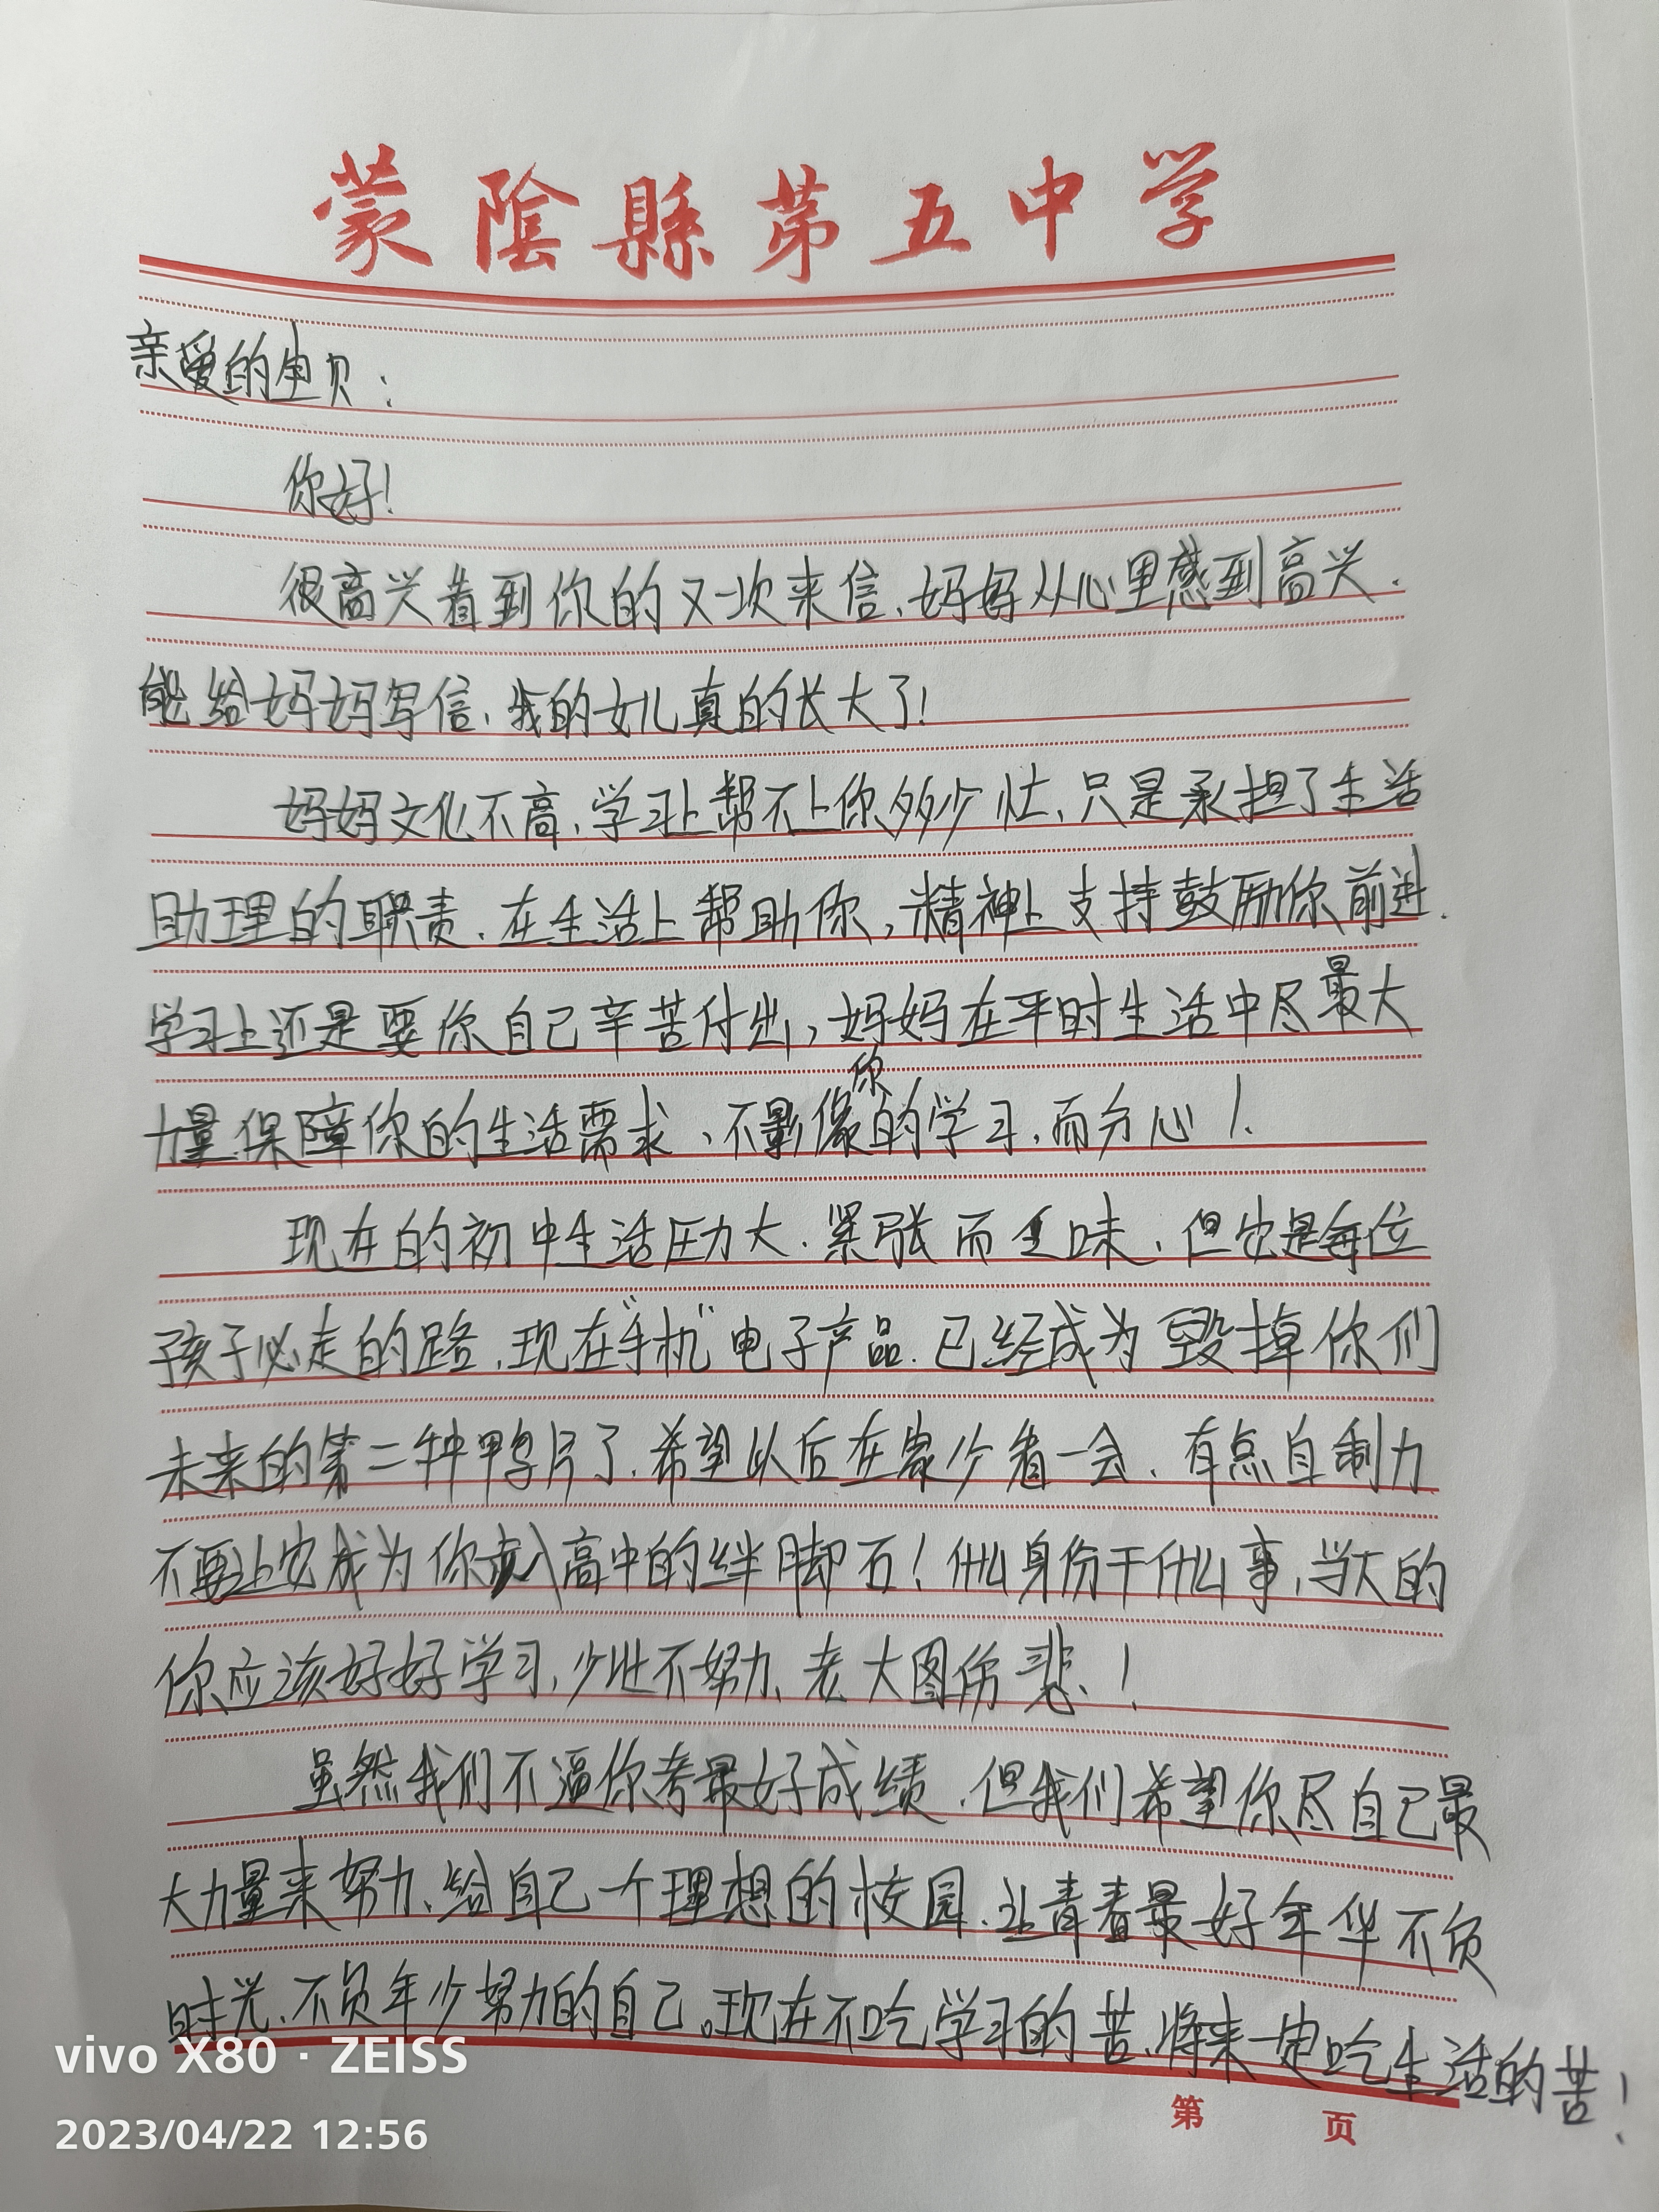 蒙陰縣第五中学
亲爱的宝贝：
你好！
很高兴看到你的又一次来信、妈妈从心里感到高兴.
能给妈妈写信、我的女儿真的长大了！
妈妈文化不高、学习上帮不上你多少忙、只是承担了生活
助理的职责、在生活上帮助你，精神上支持鼓励你前进.
学习上还是要你自己辛苦付出，妈妈在平时生活中尽最大
力量保障你的生活需求、不影像你的学习、而分心！
现在的初中生活压力大、紧张而乏味、但它是每位
孩子必走的路、现在“手机”电子产品、已经成为毁掉你们
未来的第二种鸭片了、希望以后在家少看一会、有点自制力
不要让它成为你步入高中的绊脚石！什么身份干什么事、当大的
你应该好好学习、少壮不努力、老大图伤悲、！
虽然我们不逼你考最好成绩、但我们希望你尽自己最
大力量来努力、给自己一个理想的校园、让青春最好年华不负
时光、不负年少努力的自己。现在不吃学习的苦、将来一定吃生活的苦！
第 页
vivo X80 · ZEISS
2023/04/22 12:56